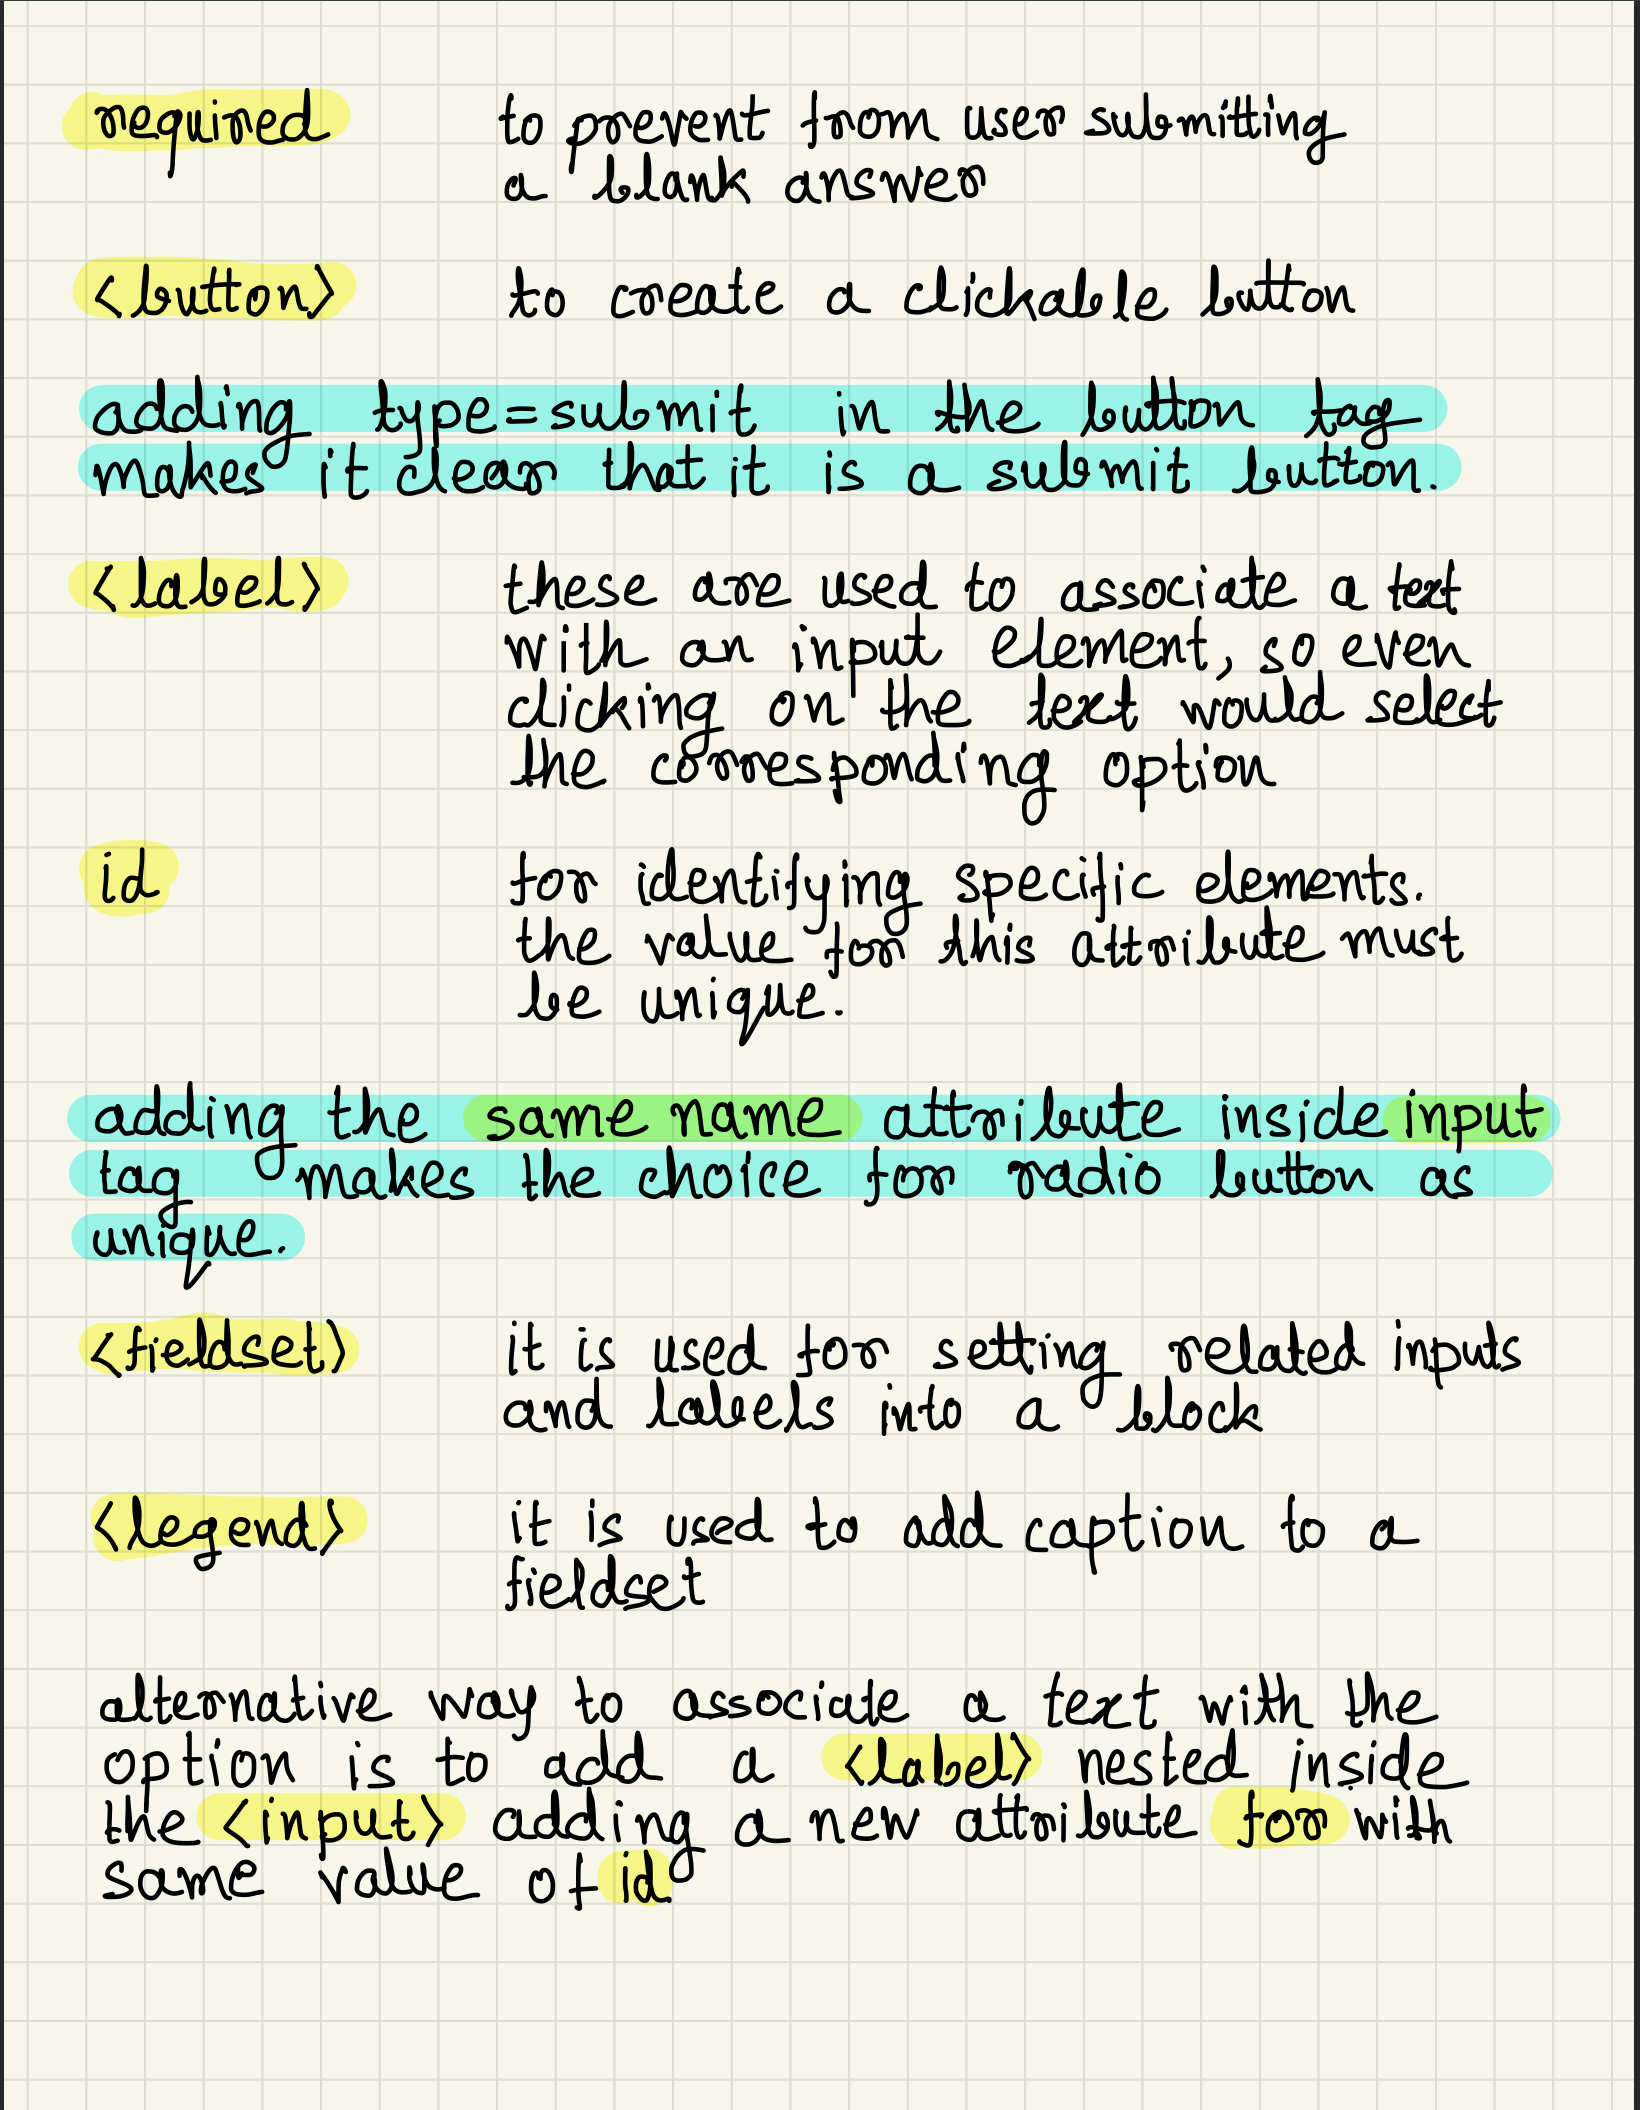 required to prevent from user submitting
a blank answer
<button> to create a clickable button
adding type=submit in the button tag
makes it clear that it is a submit button.
<label> these are used to associate a text
with an input element, so even
clicking on the text would select
the corresponding option
id for identifying specific elements.
the value for this attribute must
be unique.
adding the same name attribute inside input
tag makes the choice for radio button as
unique.
<fieldset> it is used for setting related inputs
and labels into a block
<legend> it is used to add caption to a
fieldset
alternative way to associate a text with the
option is to add a <label> nested inside
the <input> adding a new attribute for with
same value of id